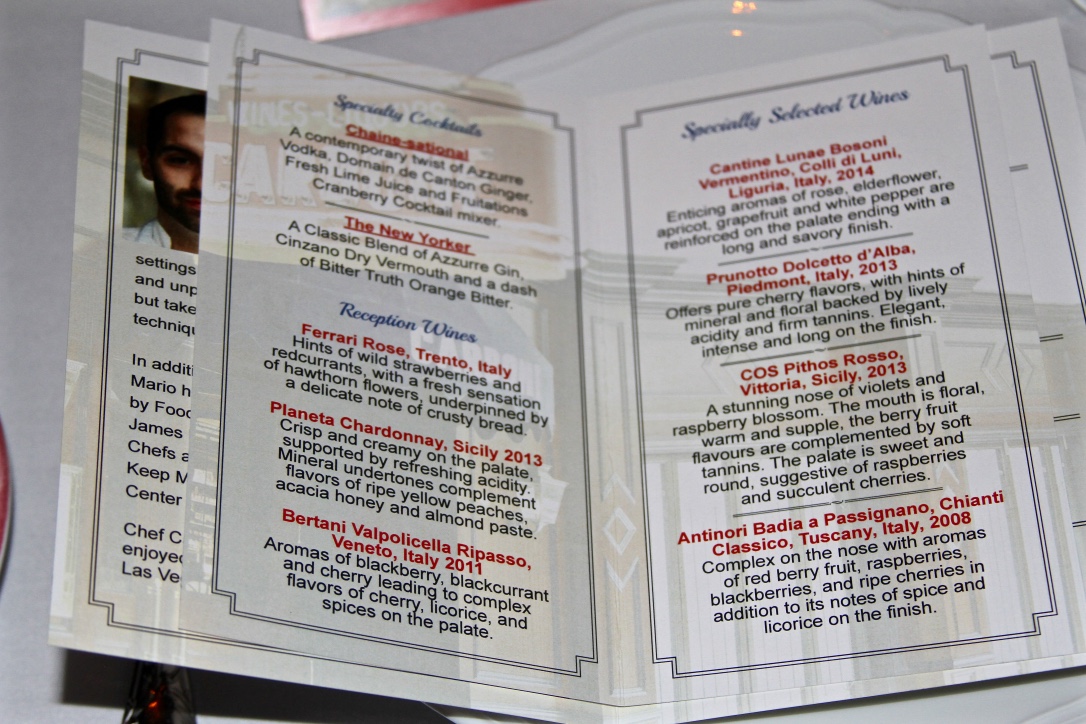 settings
and unp
but take
techniqu
In additi
Mario h
by Food
James
Chefs a
Keep M
Center
Chef C
enjoyed
Las Ve
Specialty Cocktails
Chaine-sational
A contemporary twist of Azzurre
Vodka, Domain de Canton Ginger,
Fresh Lime Juice and Fruitations
Cranberry Cocktail mixer.
The New Yorker
A Classic Blend of Azzurre Gin,
Cinzano Dry Vermouth and a dash
of Bitter Truth Orange Bitter.
Reception Wines
Ferrari Rose, Trento, Italy
Hints of wild strawberries and
redcurrants, with a fresh sensation
of hawthorn flowers, underpinned by
a delicate note of crusty bread.
Planeta Chardonnay, Sicily 2013
Crisp and creamy on the palate,
supported by refreshing acidity.
Mineral undertones complement
flavors of ripe yellow peaches,
acacia honey and almond paste.
Bertani Valpolicella Ripasso,
Veneto, Italy 2011
Aromas of blackberry, blackcurrant
and cherry leading to complex
flavors of cherry, licorice, and
spices on the palate.
Specially Selected Wines
Cantine Lunae Bosoni
Vermentino, Colli di Luni,
Liguria, Italy, 2014
Enticing aromas of rose, elderflower,
apricot, grapefruit and white pepper are
reinforced on the palate ending with a
long and savory finish.
Prunotto Dolcetto d'Alba,
Piedmont, Italy, 2013
Offers pure cherry flavors, with hints of
mineral and floral backed by lively
acidity and firm tannins. Elegant,
intense and long on the finish.
COS Pithos Rosso,
Vittoria, Sicily, 2013
A stunning nose of violets and
raspberry blossom. The mouth is floral,
warm and supple, the berry fruit
flavours are complemented by soft
tannins. The palate is sweet and
round, suggestive of raspberries
and succulent cherries.
Antinori Badia a Passignano, Chianti
Classico, Tuscany, Italy, 2008
Complex on the nose with aromas
of red berry fruit, raspberries,
blackberries, and ripe cherries in
addition to its notes of spice and
licorice on the finish.